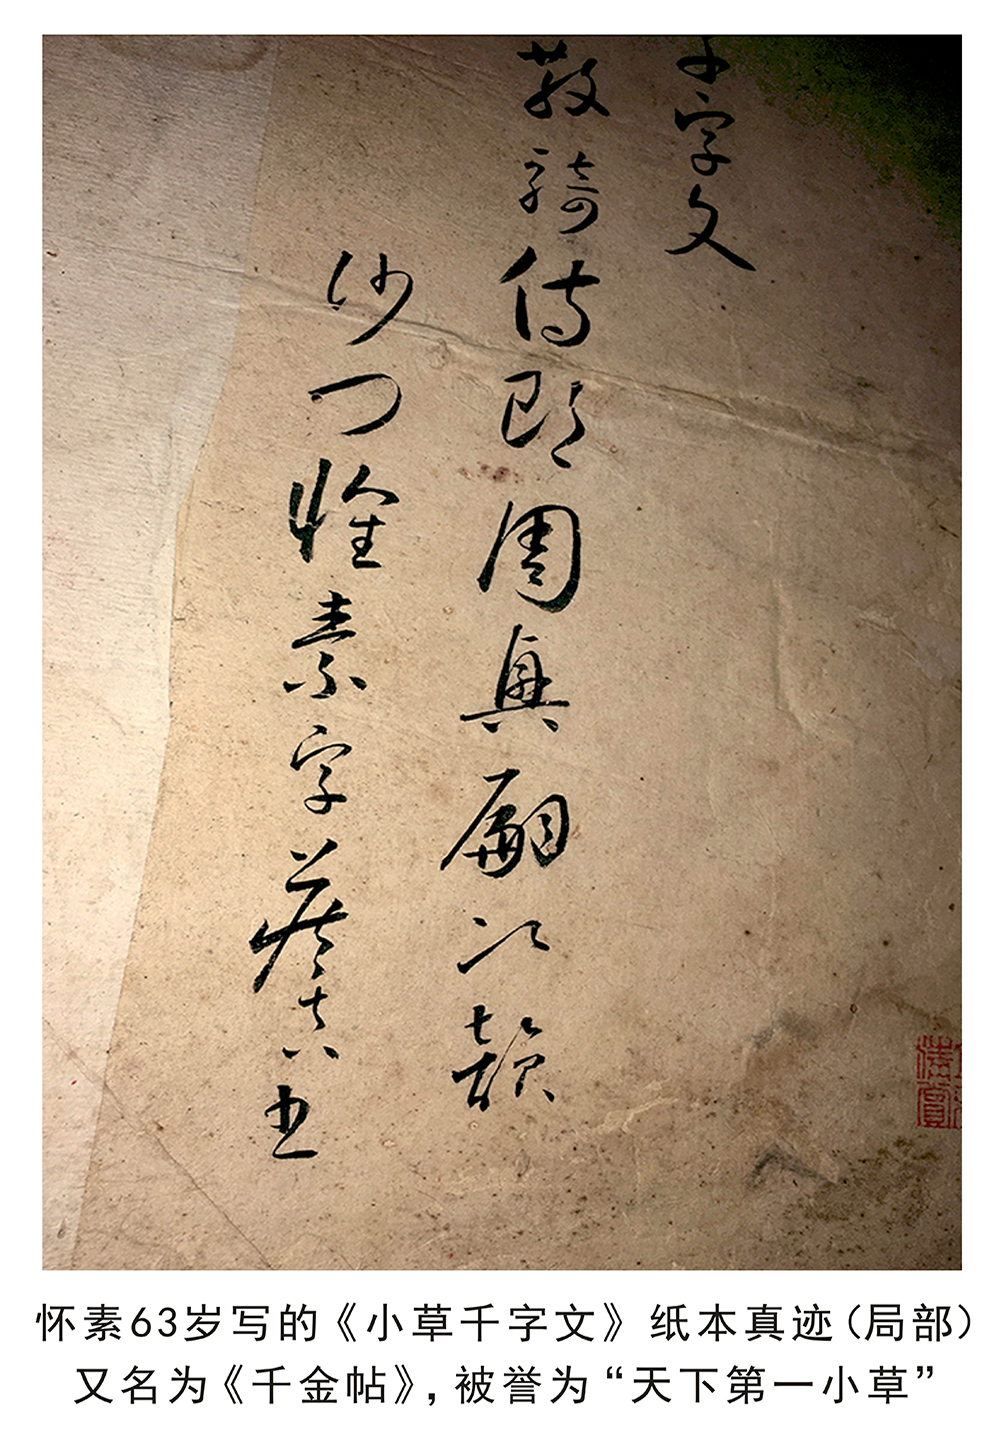 千字文
散骑侍郎周兴嗣次韵
沙门怀素字藏真书
怀素63岁写的《小草千字文》纸本真迹（局部）
又名为《千金帖》，被誉为“天下第一小草”